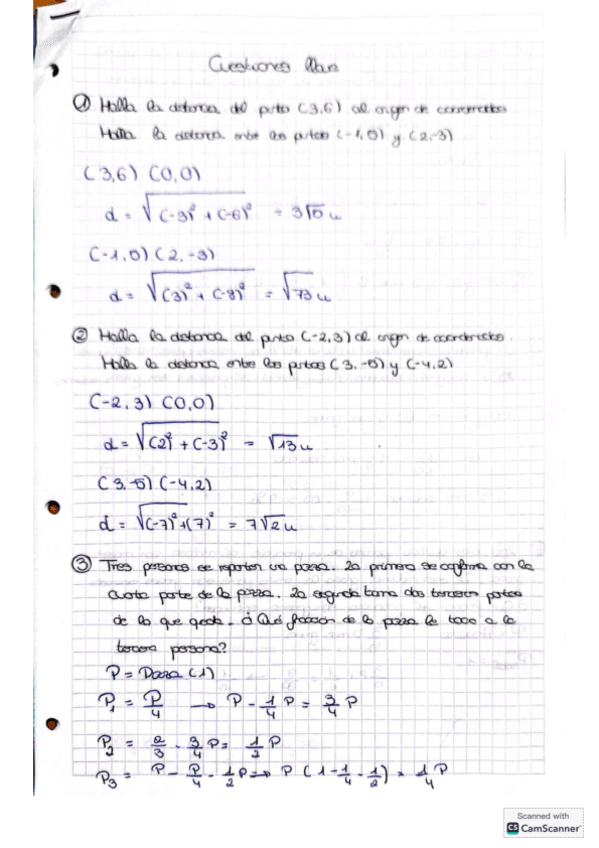 Cuestiones
① Halla la distancia del punto (3,6) al origen de coordenadas
Halla la distancia entre los puntos (-1,5) y (2,-3)
(3,6) (0,0)
d = √((-3)² + (-6)²) = 3√5 u
(-1,5) (2,-3)
d = √((3)² + (-8)²) = √73 u
② Halla la distancia del punto (-2,3) al origen de coordenadas.
Halla la distancia entre los puntos (3,-5) y (-4,2)
(-2,3) (0,0)
d = √((2)² + (-3)²) = √13 u
(3,-5) (-4,2)
d = √((-7)² + (7)²) = 7√2 u
③ Tres personas se reparten una pizza. La primera se conforma con la
cuarta parte de la pizza. La segunda toma dos terceras partes
de lo que queda. ¿Qué fracción de la pizza le toca a la
tercera persona?
P = Pizza (1)
P₁ = P/4 → P - 1/4 P = 3/4 P
P₂ = 2/3 · 3/4 P = 1/2 P
P₃ = P - P/4 - 1/2 P => P (1 - 1/4 - 1/2) = 1/4 P
Scanned with
CS CamScanner